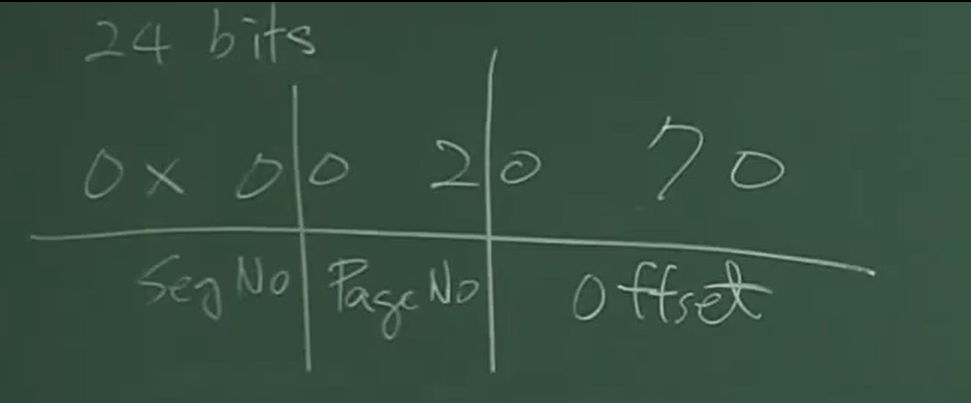 24 bits
0x 0 0 2 0 70
Seg No Page No Offset